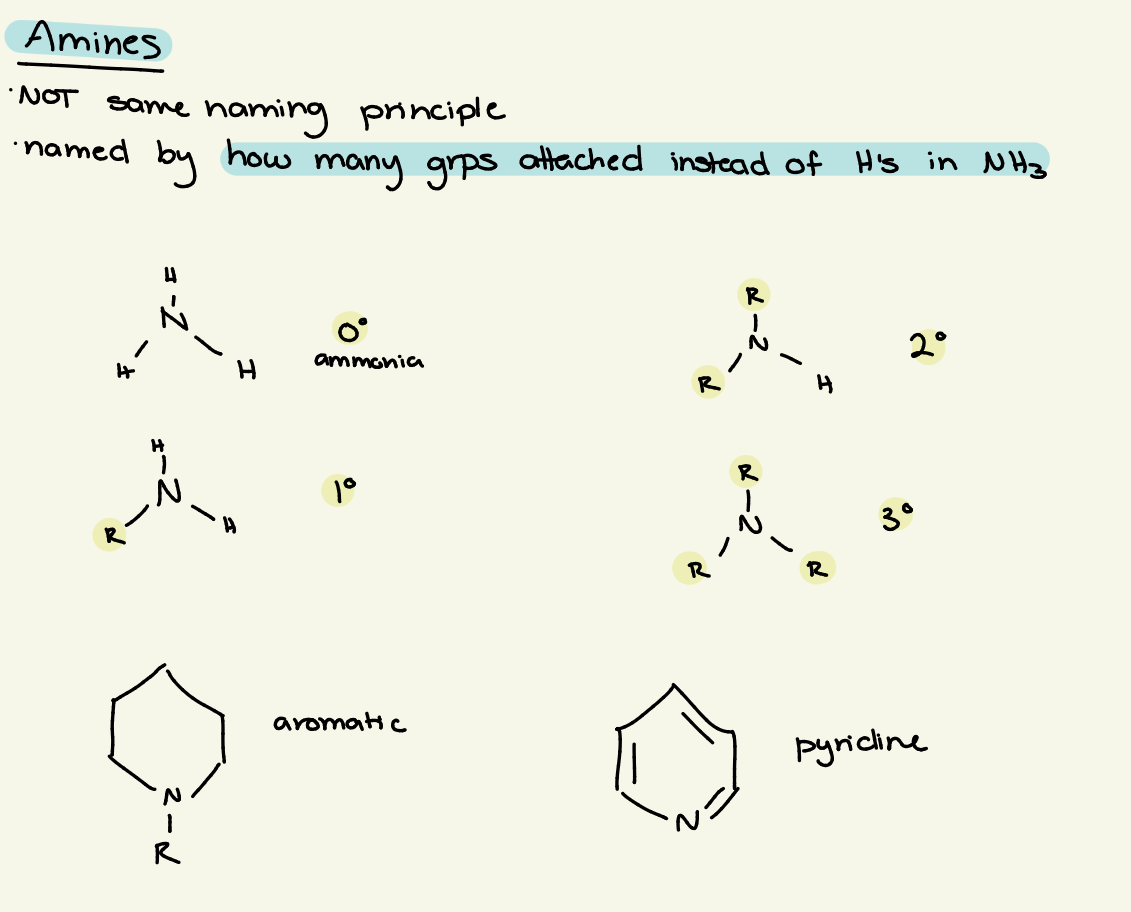 Amines
·NOT same naming principle
·named by how many grps attached instead of H's in NH3
H
N
H H
0°
ammonia
R
N
R H
2°
H
N
R H
1°
R
N
R R
3°
N
R
aromatic
N
pyridine